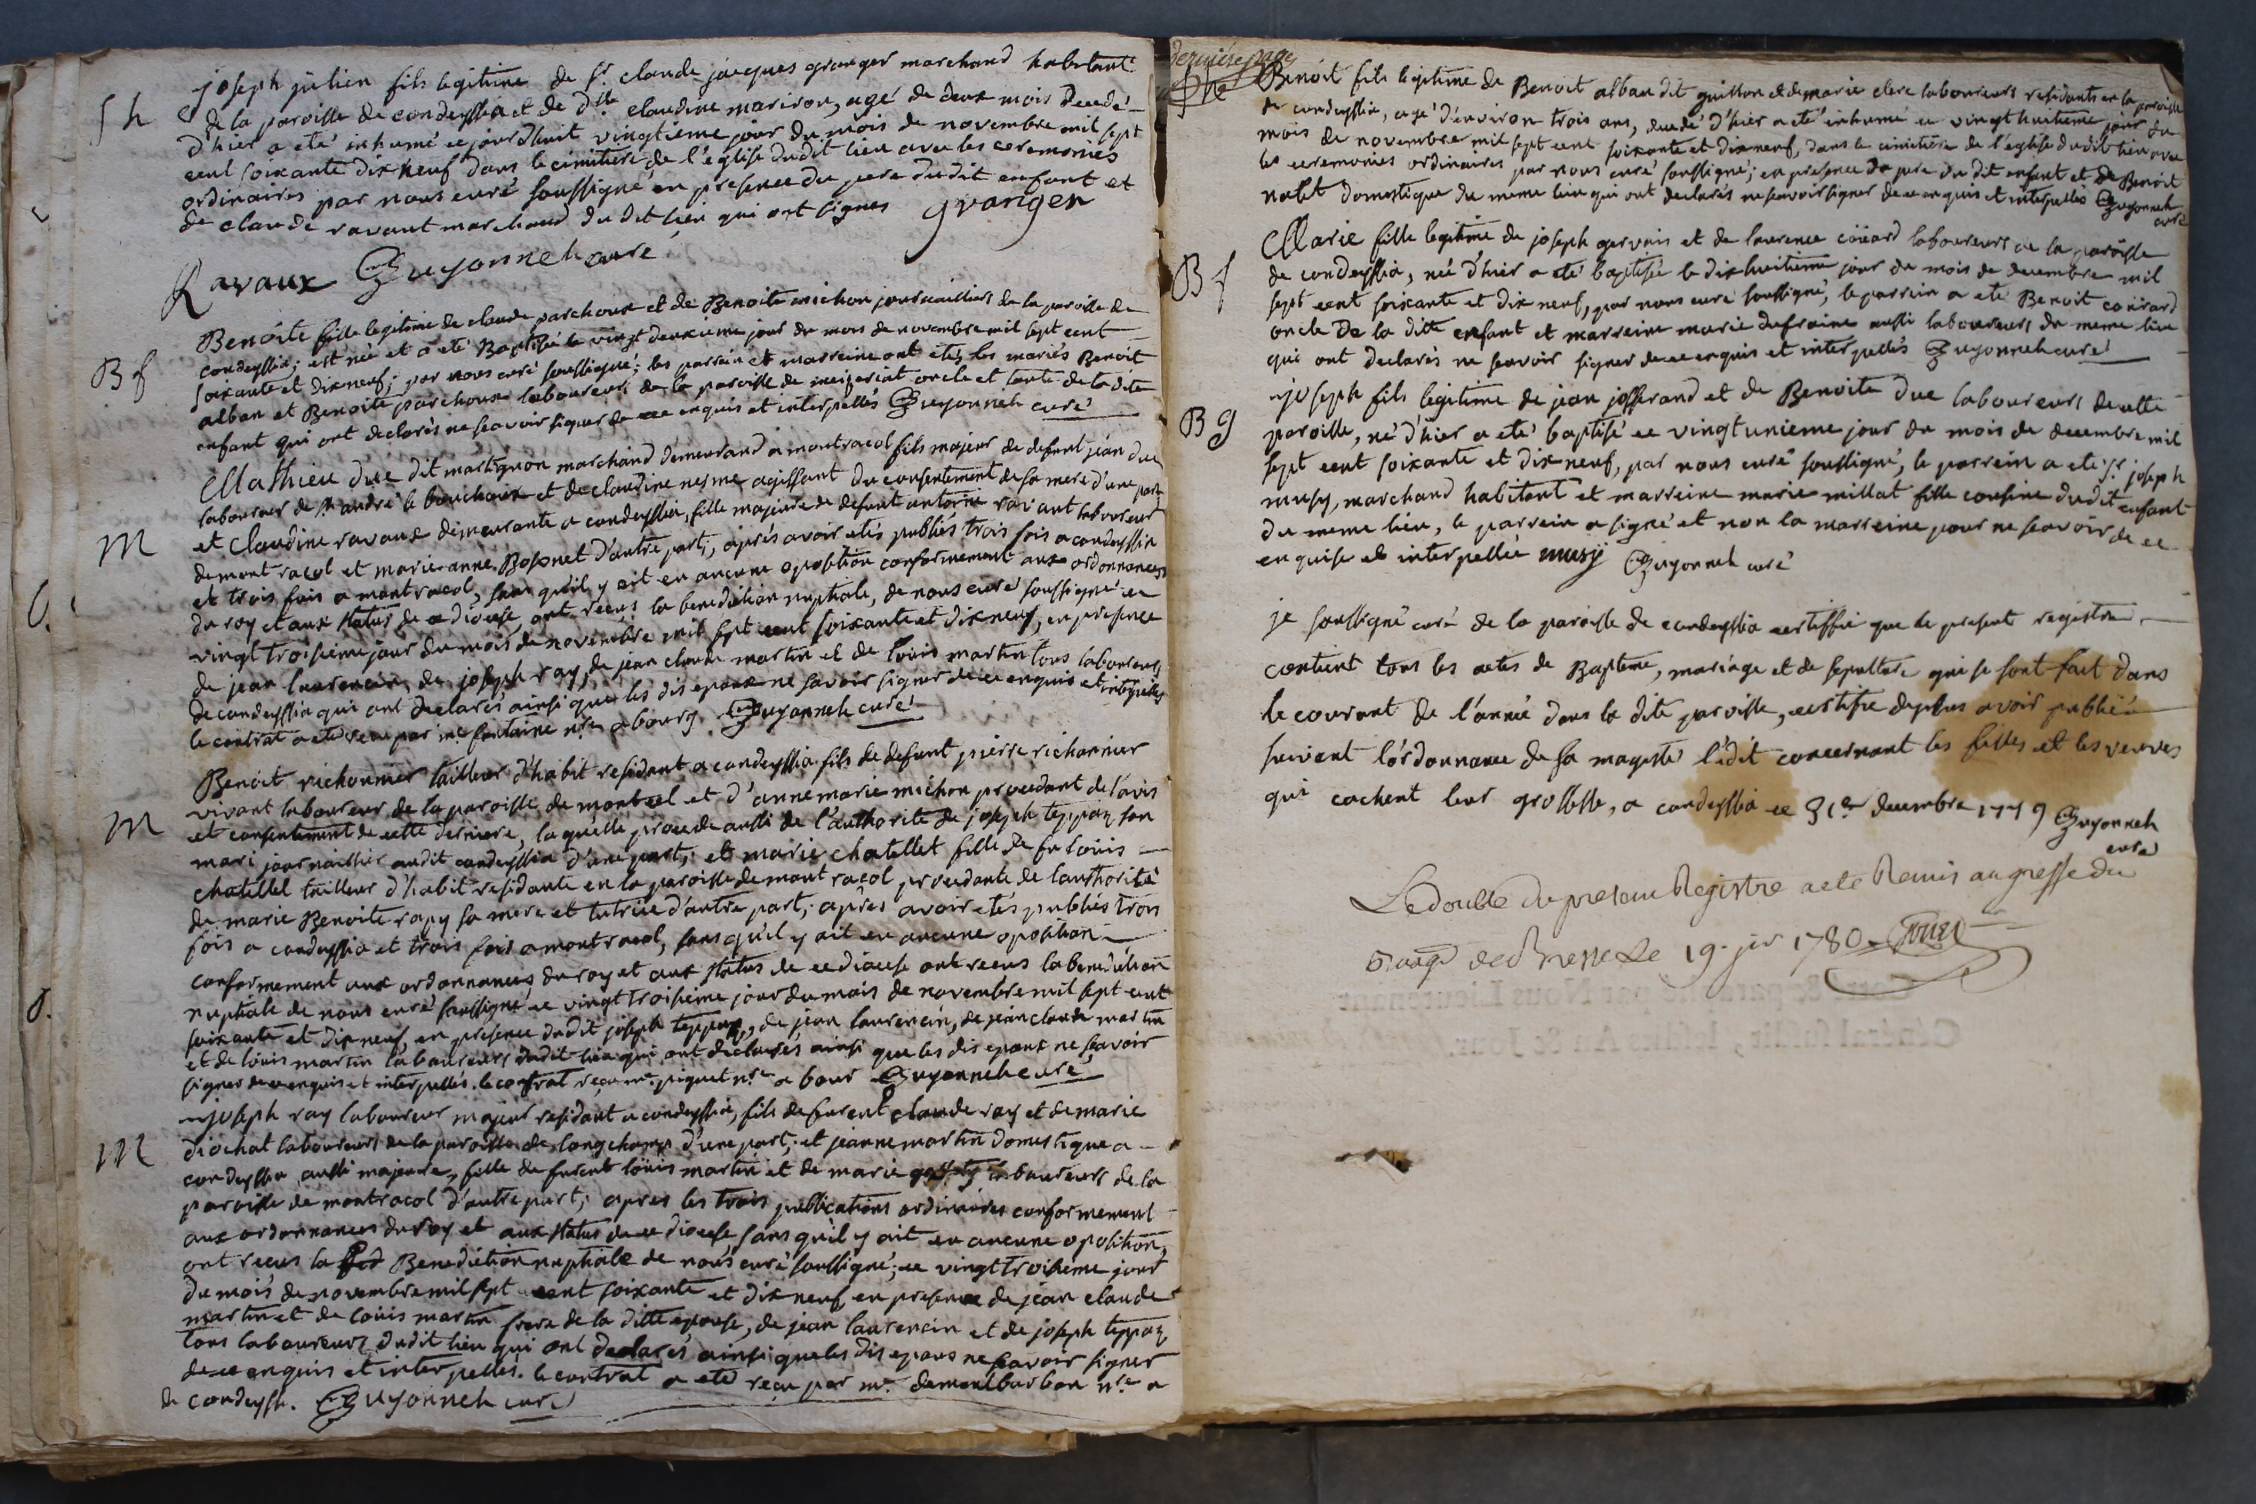 Sh
joseph julien fils legitime de sr. claude jacques granger marchand habitant
de la paroisse de condeyssia et de dlle claudine mariron, agé de deux mois decedé
d'hier a eté inhumé ce jourdhuit vingtieme jour du mois de novembre mil sept
cent soixante dix neuf dans le cimitiere de l'eglise dudit lieu avec les ceremonies
ordinaires par nous curé soussigné en presence du pere dudit enfant et
de claude ravaut marchand du dit lieu qui ont signes granger
Ravaux Guyonneh curé
Bf
Benoite fille legitime de claude parchoux et de Benoite michon journailliers de la paroisse de
condeyssia; est née et a eté Baptisé le vingt deuxieme jour du mois de novembre mil sept cent
soixante et dix neuf; par nous curé soussigné; les parrain et marreine ont etes les mariés Benoit
alban et Benoite parchoux laboureurs de la paroisse de oncle et tante de la dite
enfant qui ont declarés ne seavoir signer de ce enquis et interpellés Guyonneh curé
M
Mathieu duc dit martignon marchand demeurand a montracol fils majeur de defunt jean duc
laboureur de st. andré le bouchoux et de claudine nesme agissant du consentement de sa mere d'une part
et Claudine ravaux demeurante a condeyssia, fille majeure de defunt antoine ravaut laboureur
de montracol et marie anne Bossnet d'autre part, aprés avoir etés publiés trois fois a condeyssia
et trois fois a montracol, sans qu'il y ait eu aucune oposition conformement aux ordonnances
du roy et aux status de ce diocese, ont reçus la benediction nuptiale, de nous curé soussigné ce
vingt troisieme jour du mois de novembre mil sept cent soixante et dix neuf, en presence
de jean laurencin, de joseph ray, de jean claude martin et de louis martin tous laboureurs
de condeyssia qui ont declarés ainsi que les dis epoux ne savoir signer de ce enquis et interpellés
le contrat a eté reçu par me. fontaine nre a bourg. Guyonneh curé
M
Benoit richonnier tailleur d'habit residant a condeyssia fils de defunt pierre richonnier
vivant laboureur de la paroisse de montcel et d'anne marie michon procedant de l'avis
et consentement de cette derniere, la quelle procede aussi de l'authorité de joseph teppaz son
mari journaillier audit condeyssia d'une part; et marie chatellet fille de fu louis
chatellet tailleur d'habit residante en la paroisse de montracol procedante de lauthorité
de marie Benoite rapy sa mere et tutrice d'autre part; aprés avoir etés publiés trois
fois a condeyssia et trois fois a montracol, sans qu'il y ait eu aucune oposition
conformement aux ordonnances du roy et aux status de ce diocese ont recus la benediction
nuptiale de nous curé soussigné ce vingt troisieme jour du mois de novembre mil sept cent
soixante et dix neuf, en presence dudit joseph teppaz, de jean laurencin, de jean claude martin
et de louis martin laboureurs dudit lieu qui ont declarés ainsi que les dis epoux ne seavoir
signer de ce enquis et interpellés. le contrat reçu me. piquet nre a bour Guyonneh curé
M
joseph ray laboureur majeur residant a condeyssia, fils de furent claude ray et de marie
diochat laboureurs de la paroisse de longchamp d'une part; et jeanne martin domestique a
condeyssia aussi majeure, fille de furent louis martin et de marie laboureurs de la
paroisse de montracol d'autre part; apres les trois publications ordinaires conformement
aux ordonnances du roy et aux status de ce diocese sans qu'il y ait eu aucune oposition,
ont recus la Benediction nuptiale de nous curé soussigné; ce vingt troisieme jour
du mois de novembre mil sept cent soixante et dix neuf en presence de jean claude
martin et de louis martin frere de la ditte epouse, de jean laurencin et de joseph teppaz
tous laboureurs dudit lieu qui ont declarés ainsi que les dis epous ne seavoir signer
de ce enquis et interpellés. le contrat a eté reçu par me. demontburbon nre a
de condeyss. Guyonneh curé
derniére page
Sh
Benoit fils legitime de Benoit alban dit guillon et de marie clerc laboureurs residants en la paroisse
de condeyssia, agé d'environ trois ans, decedé d'hier a eté inhumé ce vingt huitieme jour du
mois de novembre mil sept cent soixante et dix neuf, dans le cimitiere de l'eglise dudit lieu avec
les ceremonies ordinaires par nous curé soussigné; en presence du pere du dit enfant et de Benoit
nallet domestique du meme lieu qui ont declarés ne seavoir signer de ce enquis et interpellés Guyonneh
curé
Bf
Marie fille legitime de joseph gervais et de laurence coüard laboureurs de la paroisse
de condeyssia, née d'hier a eté baptisée le dix huitieme jour du mois de decembre mil
sept cent soixante et dix neuf, par nous curé soussigné, le parrein a eté Benoit coüard
oncle De la ditte enfant et marreine marie dufraine aussi laboureurs du meme lieu
qui ont declarés ne seavoir signer de ce enquis et interpellés Guyonneh curé
Bg
joseph fils legitime de jean josserand et de Benoite duc laboureurs de cette
paroisse, né d'hier a eté baptisé ce vingt unieme jour du mois de decembre mil
sept cent soixante et dix neuf, par nous curé soussigné, le parrein a eté sr. joseph
musy, marchand habitant et marreine marie millat fille cousine dudit enfant
du meme lieu, le parrein a signé et non la marreine pour ne seavoir de ce
enquise et interpellée musÿ Guyonneh curé
je soussigné curé de la paroisse de condeyssia certiffie que le present registre
contient tous les actes de Bapteme, mariage et de sepulture qui se sont fait dans
le courant de l'année dans la dite paroisse, certifie deplus avoir publié
suivant l'ordonnance de sa magesté l'edit concernant les filles et les veuves
qui cachent leur grossesse, a condeyssia ce 31er decembre 1779 Guyonneh
curé
Le double du present Registre a eté Remis au greffe du
Baage de Bresse Le 19. jer 1780